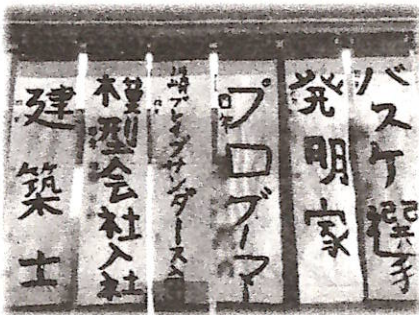 バスケ選手
発明家
プロブーマー
川崎ブレイブサンダース入団
模型会社入社
建築士